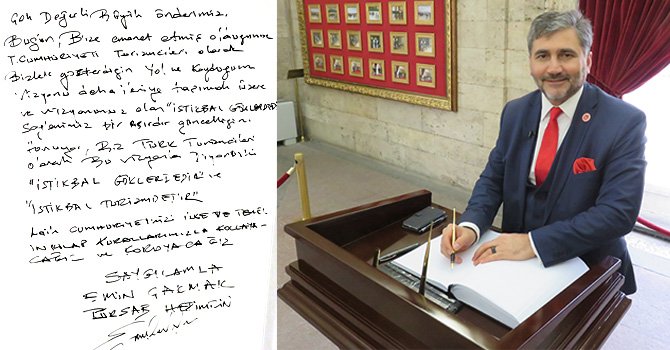 Çok Değerli Büyük Önderimiz,
Bugün, Bize emanet etmiş olduğunuz
T. CUMHURİYETİ Turizmcileri olarak
Bizlere gösterdiğin Yol ve Koyduğun
Vizyonu daha ileriye taşımak üzere
ve vizyonunuz olan "İSTİKBAL GÖKLERDEDİR"
bir asırdır güncelliğini
koruyor, Biz TÜRK Turizmcileri
olarak Bu vizyonla
"İSTİKBAL GÖKLERDEDİR ve
"İSTİKBAL TURİZMDEDİR"
Laik CUMHURİYETİNİZİ İLKE VE TEMEL
İNKILAP KURALLARIMIZLA KOLLAYA-
CAĞIZ ve KORUYACAĞIZ
SAYGILARIMLA
EMİN ÇAKMAK